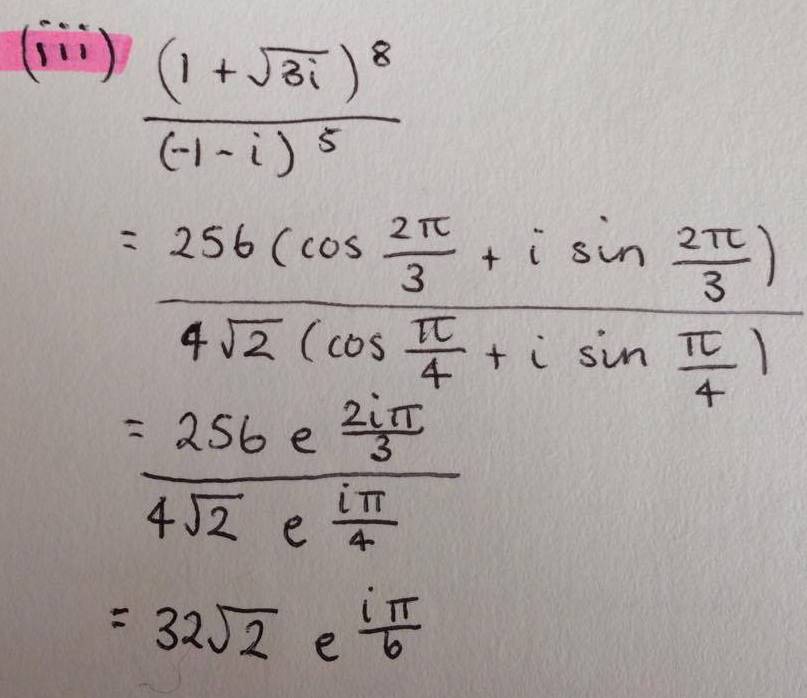 (iii) (1 + √3i)⁸
(-1 - i)⁵
= 256 (cos 2π/3 + i sin 2π/3)
4√2 (cos π/4 + i sin π/4)
= 256 e^(2iπ/3)
4√2 e^(iπ/4)
= 32√2 e^(iπ/6)